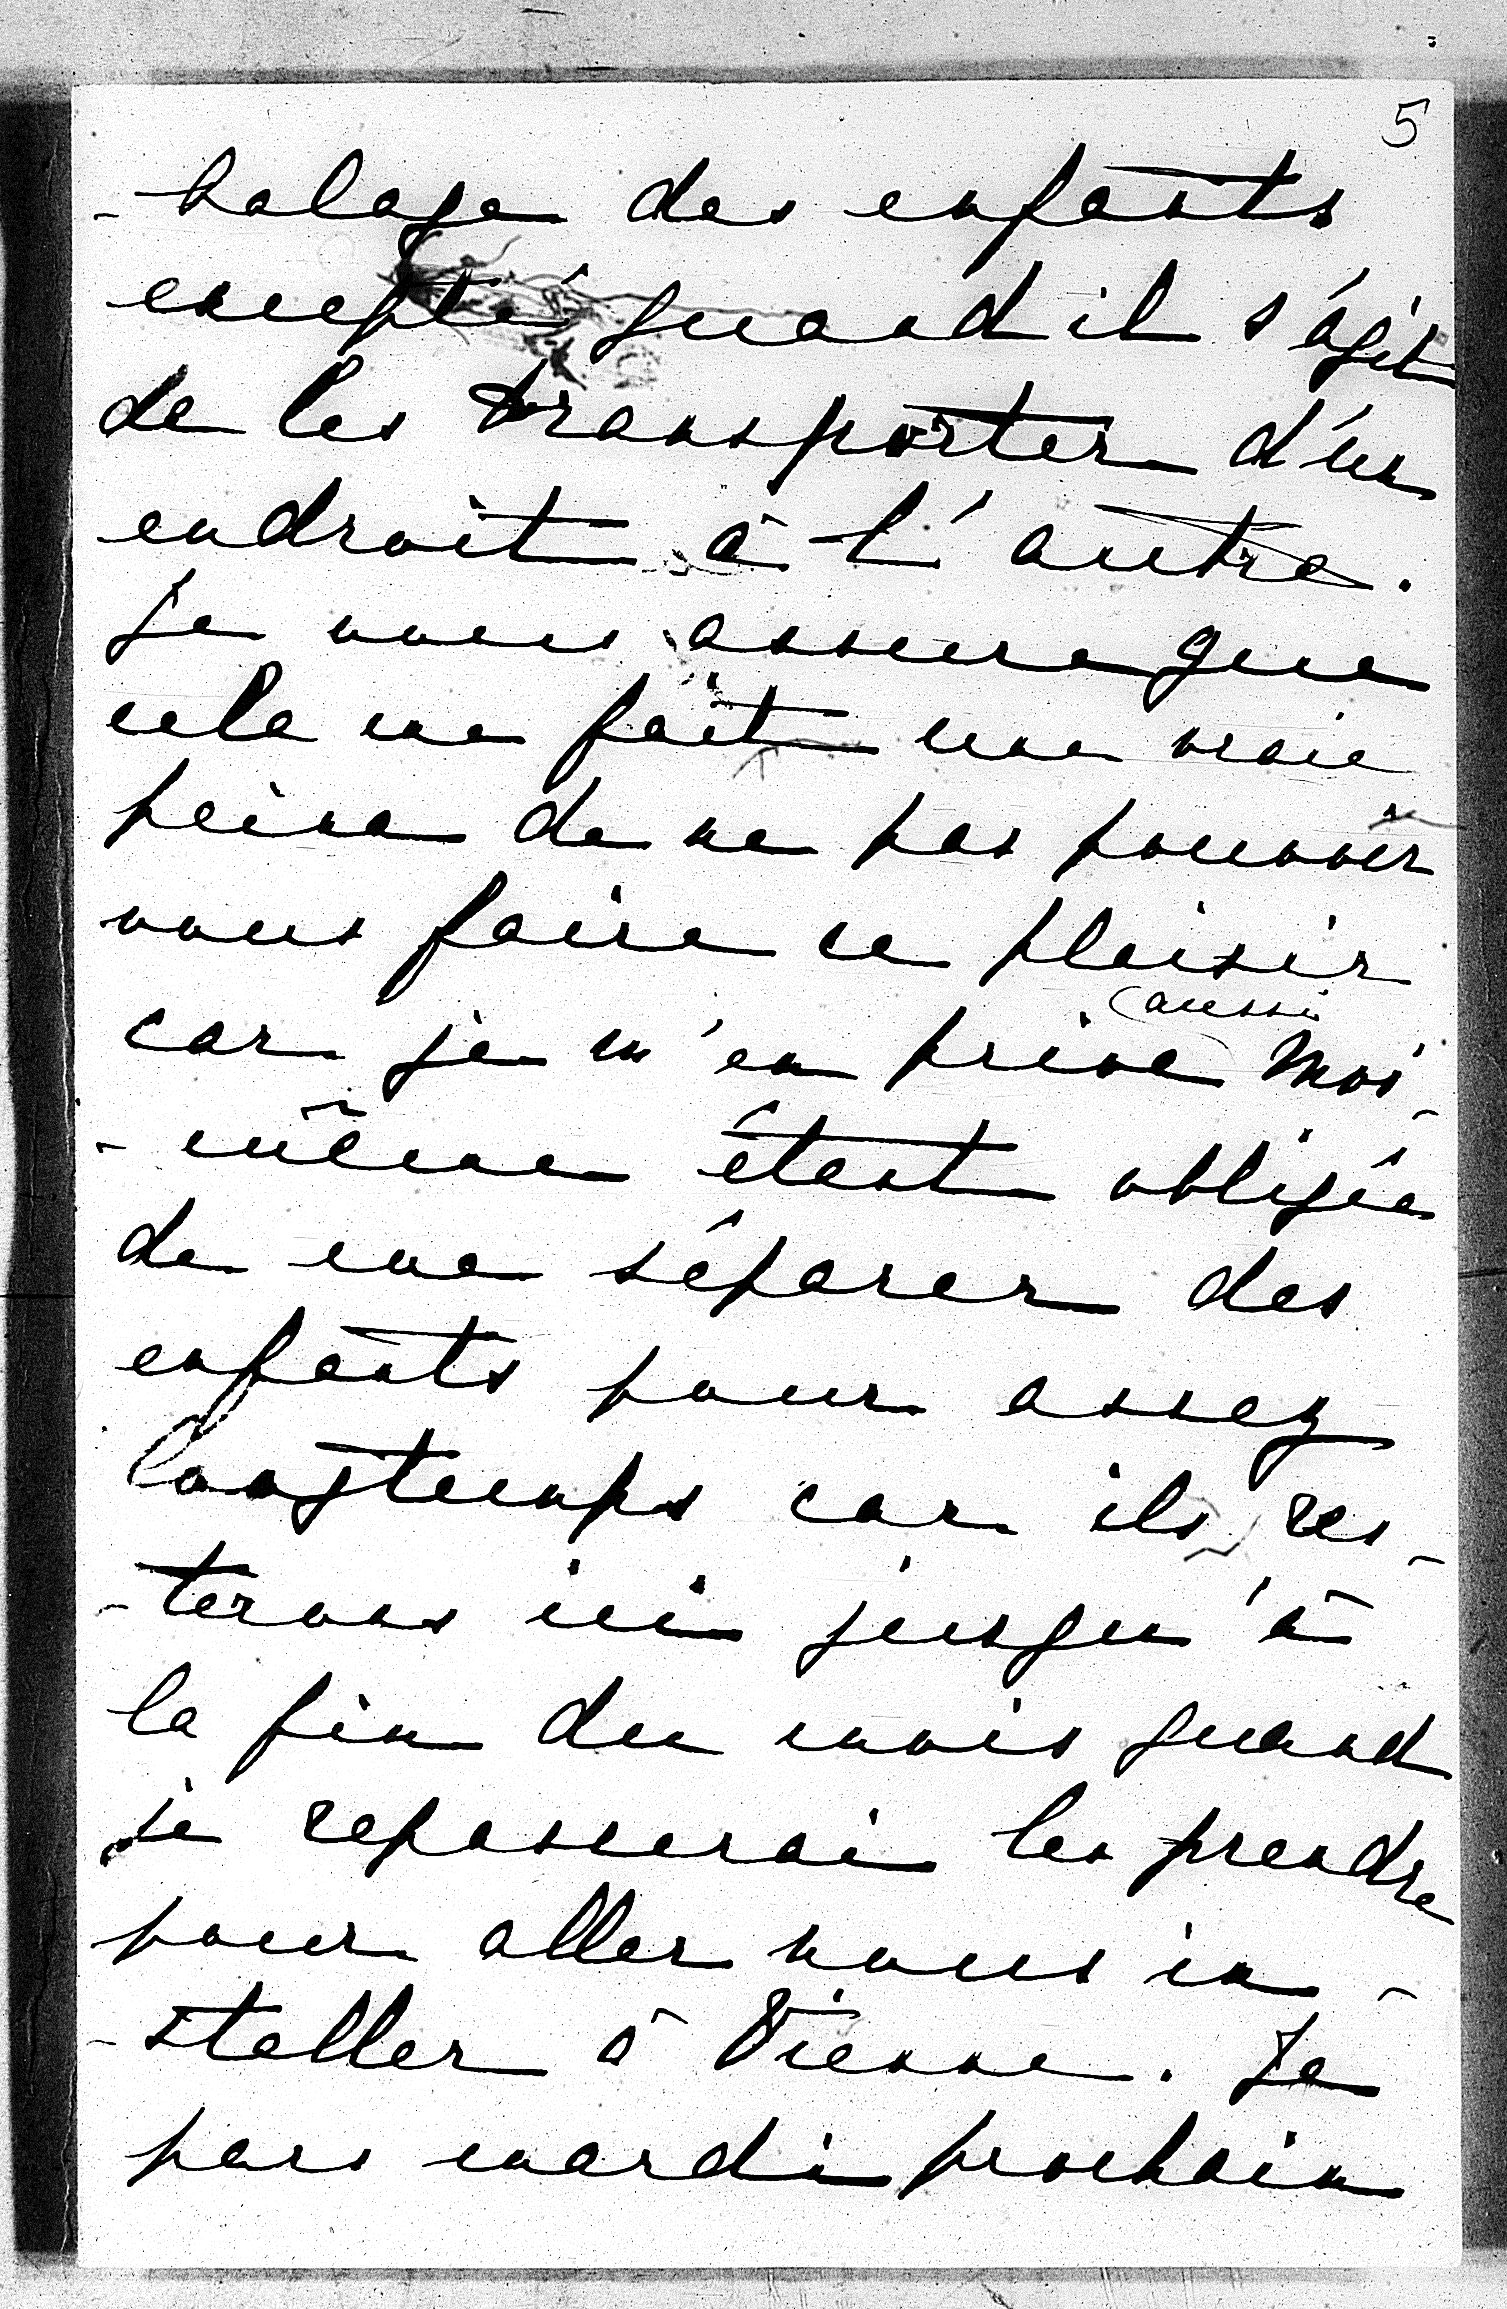 5
-balage des enfants
excepté quand il s'agit
de les transporter d'un
endroit à l'autre.
Je vous assure que
cela me fait une vraie
peine de ne pas pouvoir
vous faire ce plaisir
aussi
car je m'en prive moi-
-même étant obligée
de me séparer des
enfants pour assez
longtemps car ils res-
-terons ici jusqu'à
la fin du mois quand
je repasserai les prendre
pour aller nous in-
-staller à Vienne. Je
pars mardi prochain